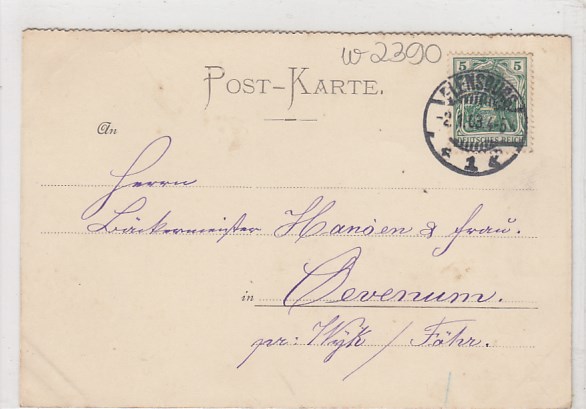 w 2390
POST-KARTE.
5 5
FLENSBURG
DEUTSCHES REICH
* 1 k
An
Herrn
Bäckermeister Hansen & Frau.
in Oevenum.
pr: Wyk / Föhr.